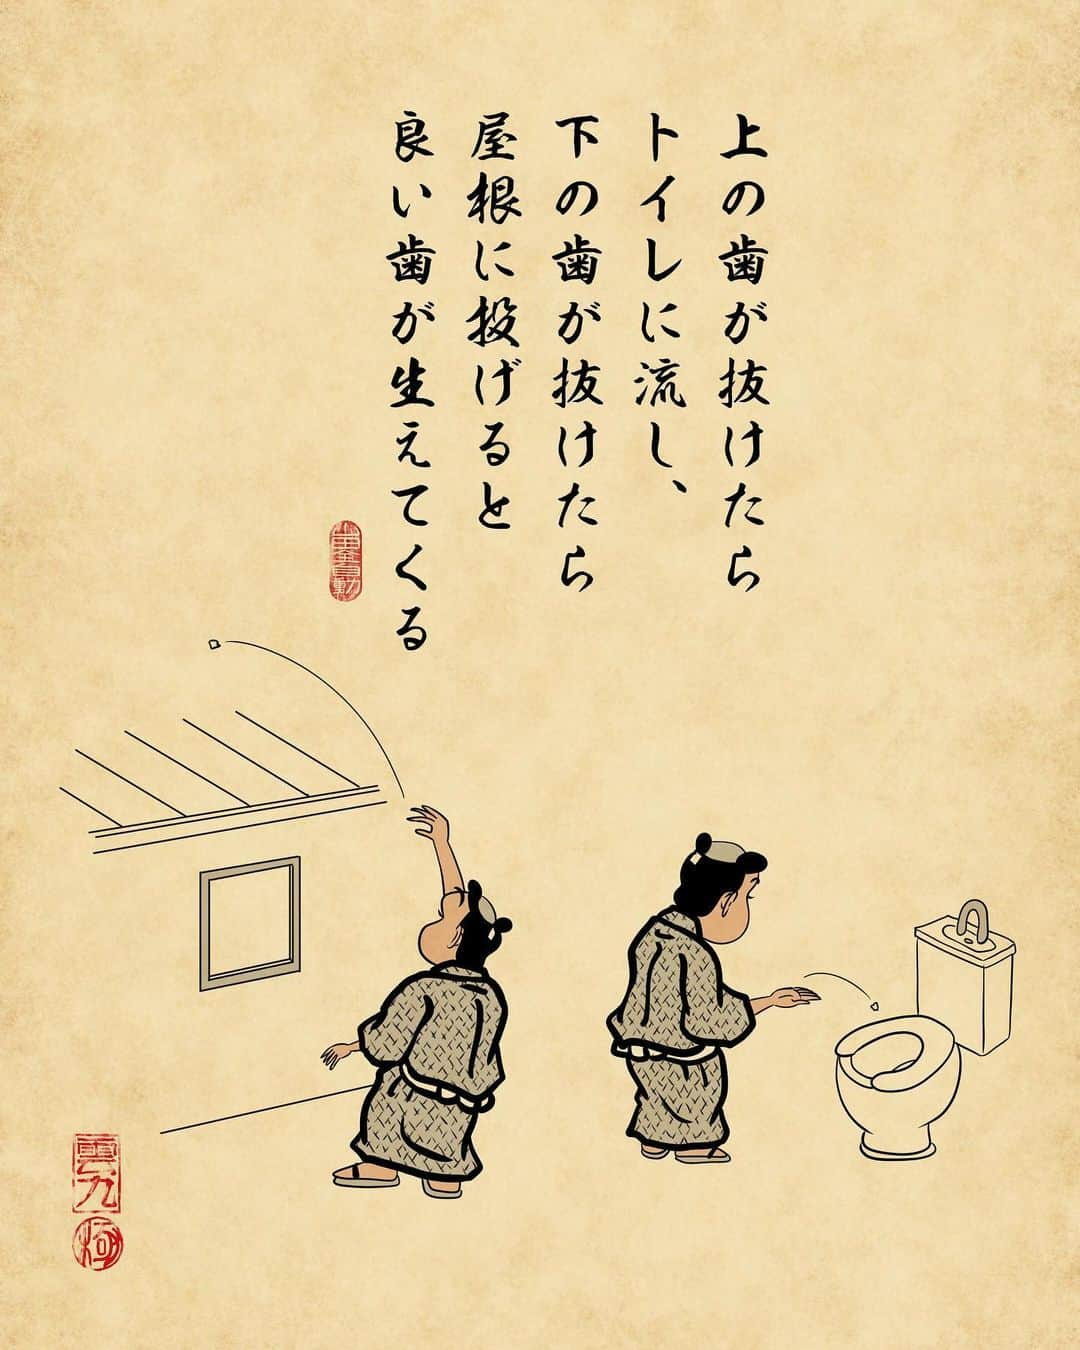 上の歯が抜けたら
トイレに流し、
下の歯が抜けたら
屋根に投げると
良い歯が生えてくる